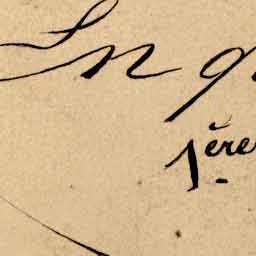 In
1ère